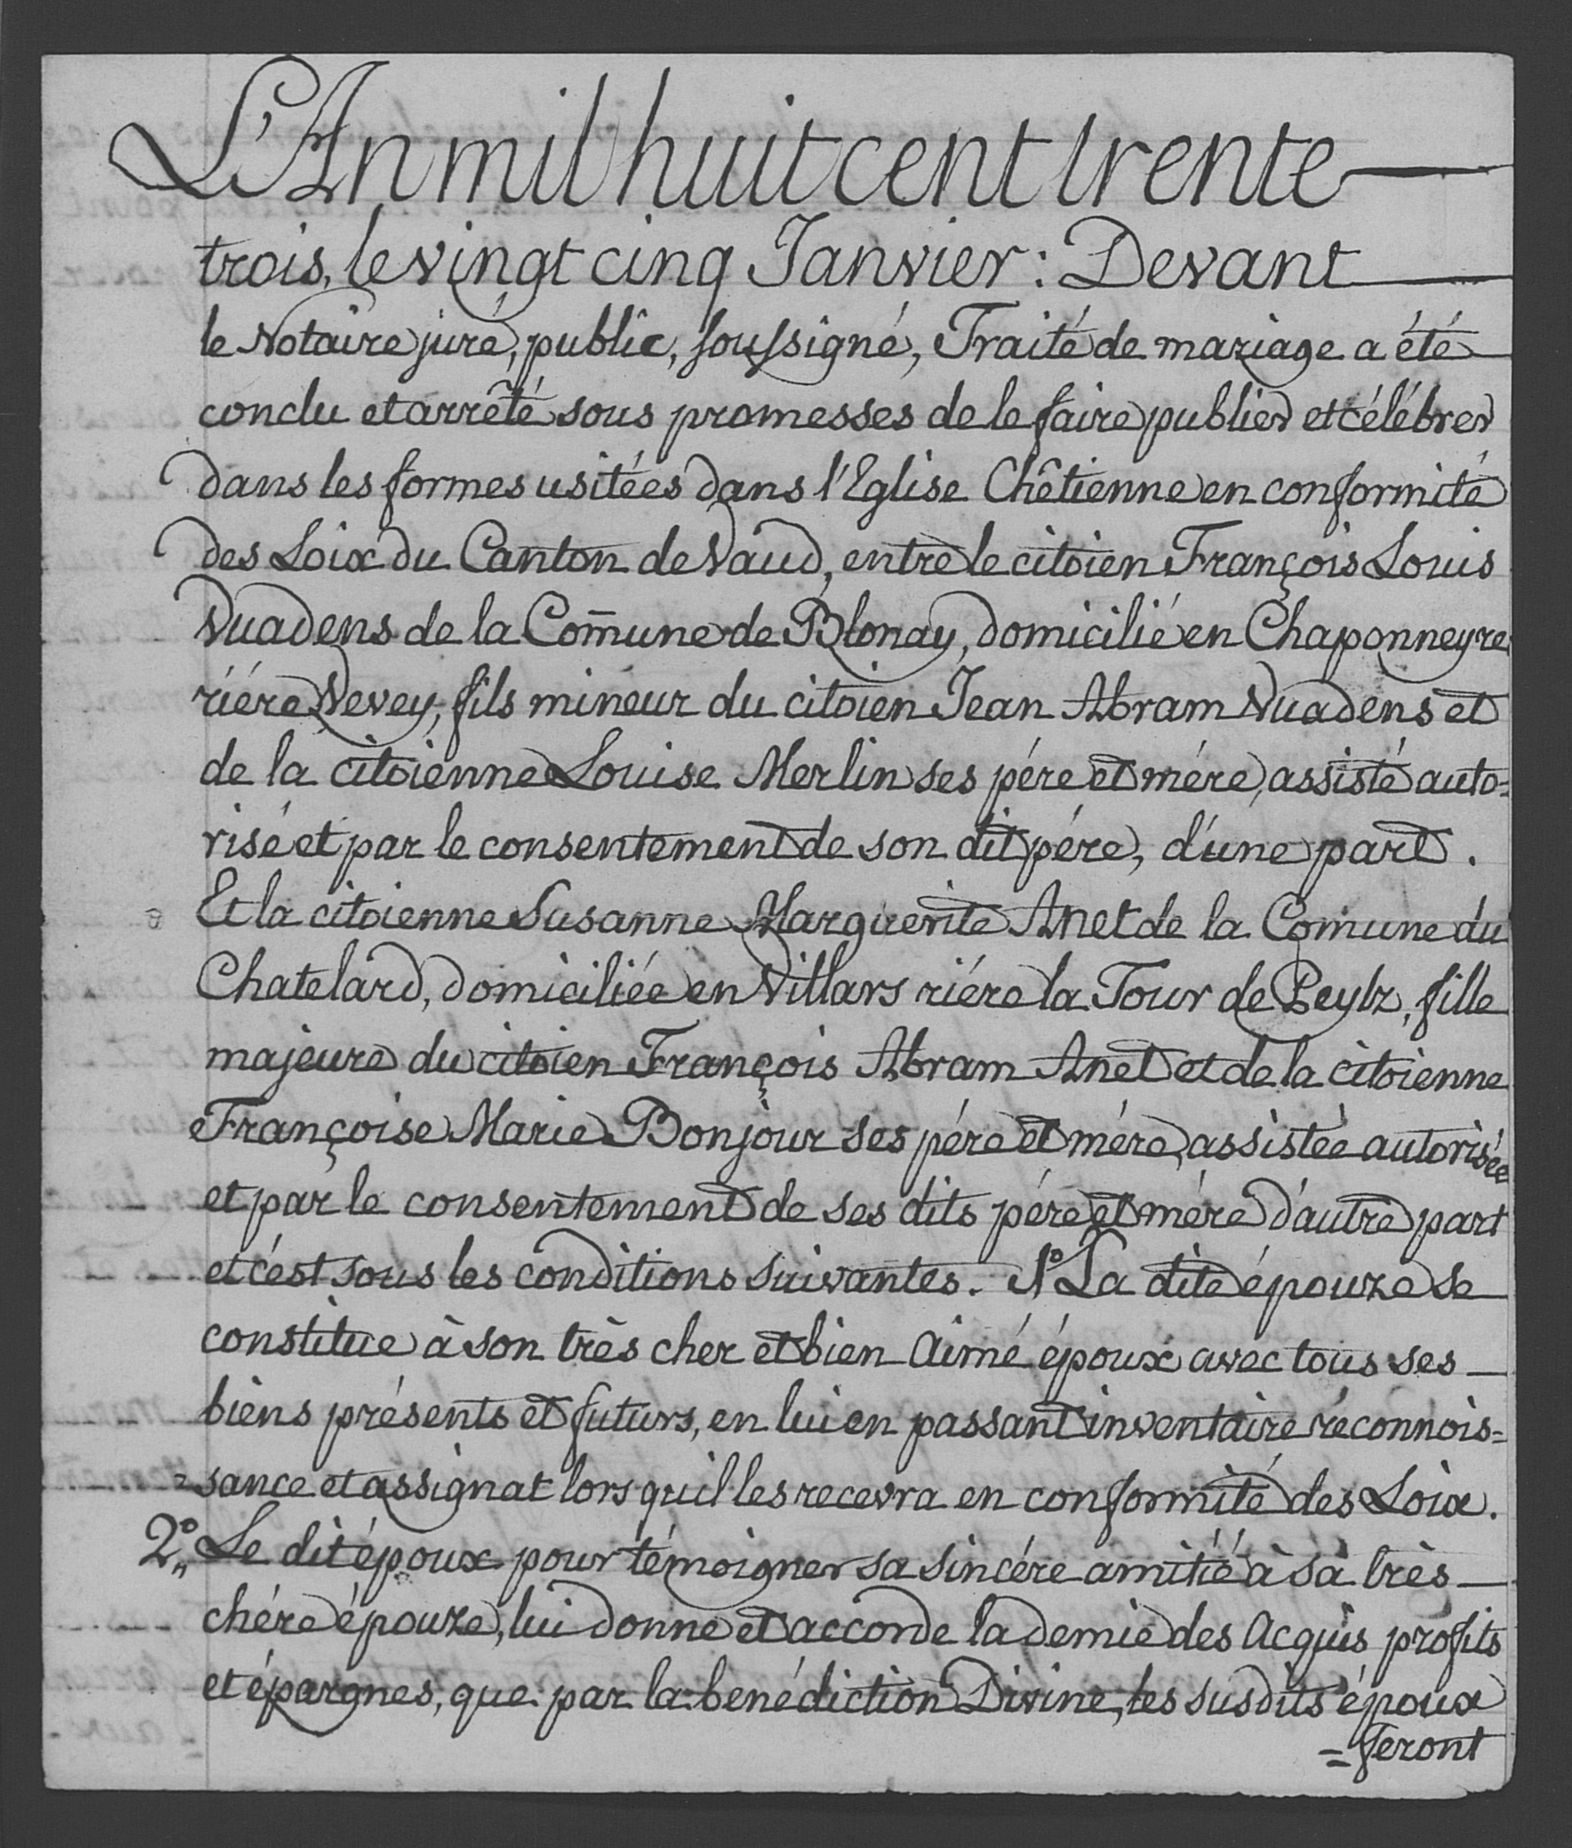 L'An mil huit cent trente
trois, le vingt cinq Janvier : Devant
le Notaire juré, public, soussigné, Traité de mariage a été
conclu et arrêté sous promesses de le faire publier et célébrer
dans les formes usitées dans l'Eglise Chêtienne en conformité
des Loix du Canton de Vaud, entre le citoien François Louis
Vuadens de la Com̄une de Blonay, domicilié en Chaponneyre
riére Vevey, fils mineur du citoien Jean Abram Vuadens et
de la citoienne Louise Merlin ses pére et mére, assisté auto=
risé et par le consentement de son dit pére, d'une part.
Et la citoienne Susanne Marguerite Anet de la Com̄une du
Chatelard, domiciliée en Villars riére la Tour de Peylz, fille
majeure du citoien François Abram Anet et de la citoienne
Françoise Marie Bonjour ses pére et mére, assistée autorisée
et par le consentement de ses dits pére et mére d'autre part
et c'est sous les conditions suivantes. 1° La dite épouze se
constitue à son très cher et bien aimé époux avec tous ses
biens présents et futurs, en lui en passant inventaire réconnois=
=sance et assignat lors qu'il les recevra en conformité des Loix.
2° Le dit époux pour témoigner sa sincére amitié à sa très
chére épouze, lui donne et accorde la demie des Acquis profits
et épargnes, que par la benédiction Divine, les susdits époux
=feront